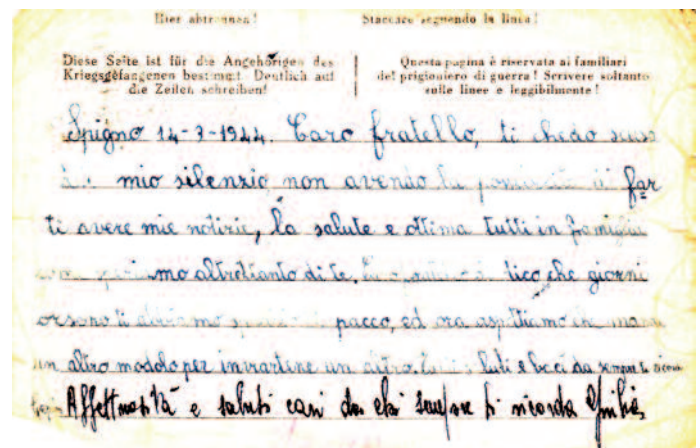 Hier abtrennen! Staccare seguendo la linea!
Diese Seite ist für die Angehörigen des
Kriegsgefangenen bestimmt. Deutlich auf
die Zeilen schreiben!
Questa pagina è riservata ai familiari
del prigioniero di guerra! Scrivere soltanto
sulle linee e leggibilmente!
Spigno 14-3-1944. Caro fratello, ti chedo
mio silenzio, non avendo la di far
ti avere mie notizie, La salute e ottima tutti in famiglia
mo altrettanto di te. tico che giorni
orsono ti abbiamo pacco, ed ora aspettiamo che
un altro modolo per inviartene un altro. luti e baci da sempre ti
Affettuosità e saluti cari da chi sempre ti ricorda